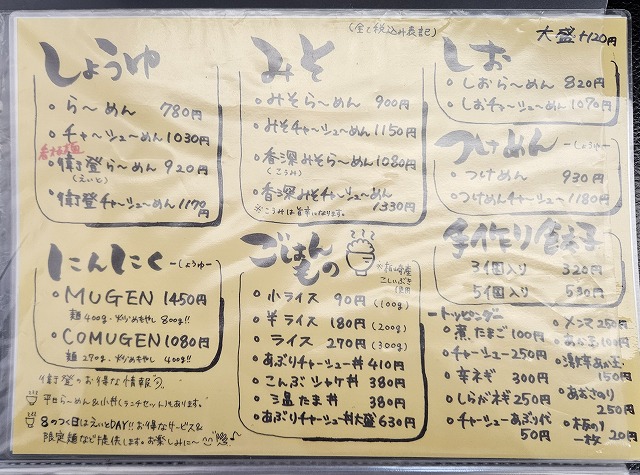 (全て税込み表記)
大盛+120円
しょうゆ
・ら〜めん 780円
・チャーシュ〜めん 1030円
看板麺
・衛登ら〜めん 920円
(えいと)
・衛登チャーシュ〜めん 1170円
みそ
・みそら〜めん 900円
・みそチャ〜シュ〜めん 1150円
・香深みそら〜めん 1080円
(こうみ)
・香深みそチャーシュ〜めん
1330円
しお
・しおら〜めん 820円
・しおチャーシュ〜めん 1070円
つけめん -しょうゆ-
・つけめん 930円
・つけめんチャーシュー 1180円
手作り餃子
3個入り 320円
5個入り 530円
にんにく -しょうゆ-
・MUGEN 1450円
麺400g・炒めもやし800g!!
・COMUGEN 1080円
麺270g・炒めもやし 400g!!
ごはんもの
・小ライス 90円(100g)
・半ライス 180円(200g)
・ライス 270円(300g)
・あぶりチャーシュー丼 410円
・こんぶシャケ丼 380円
・温たま丼 380円
・あぶりチャーシュー丼大盛 630円
ートッピングー
・煮たまご 100円
・チャーシュー 250円
・辛ネギ 300円
・しらがネギ 250円
・チャーシューあぶり代
50円
・メンマ 250円
150円
・あおさのり
250円
・板のり
一枚 20円
衛登のお得な情報
平日ら〜めん&小丼(ランチセット)もあります。
8のつく日はえいとDAY!!お得なサービス&
限定麺など提供します。お楽しみに〜